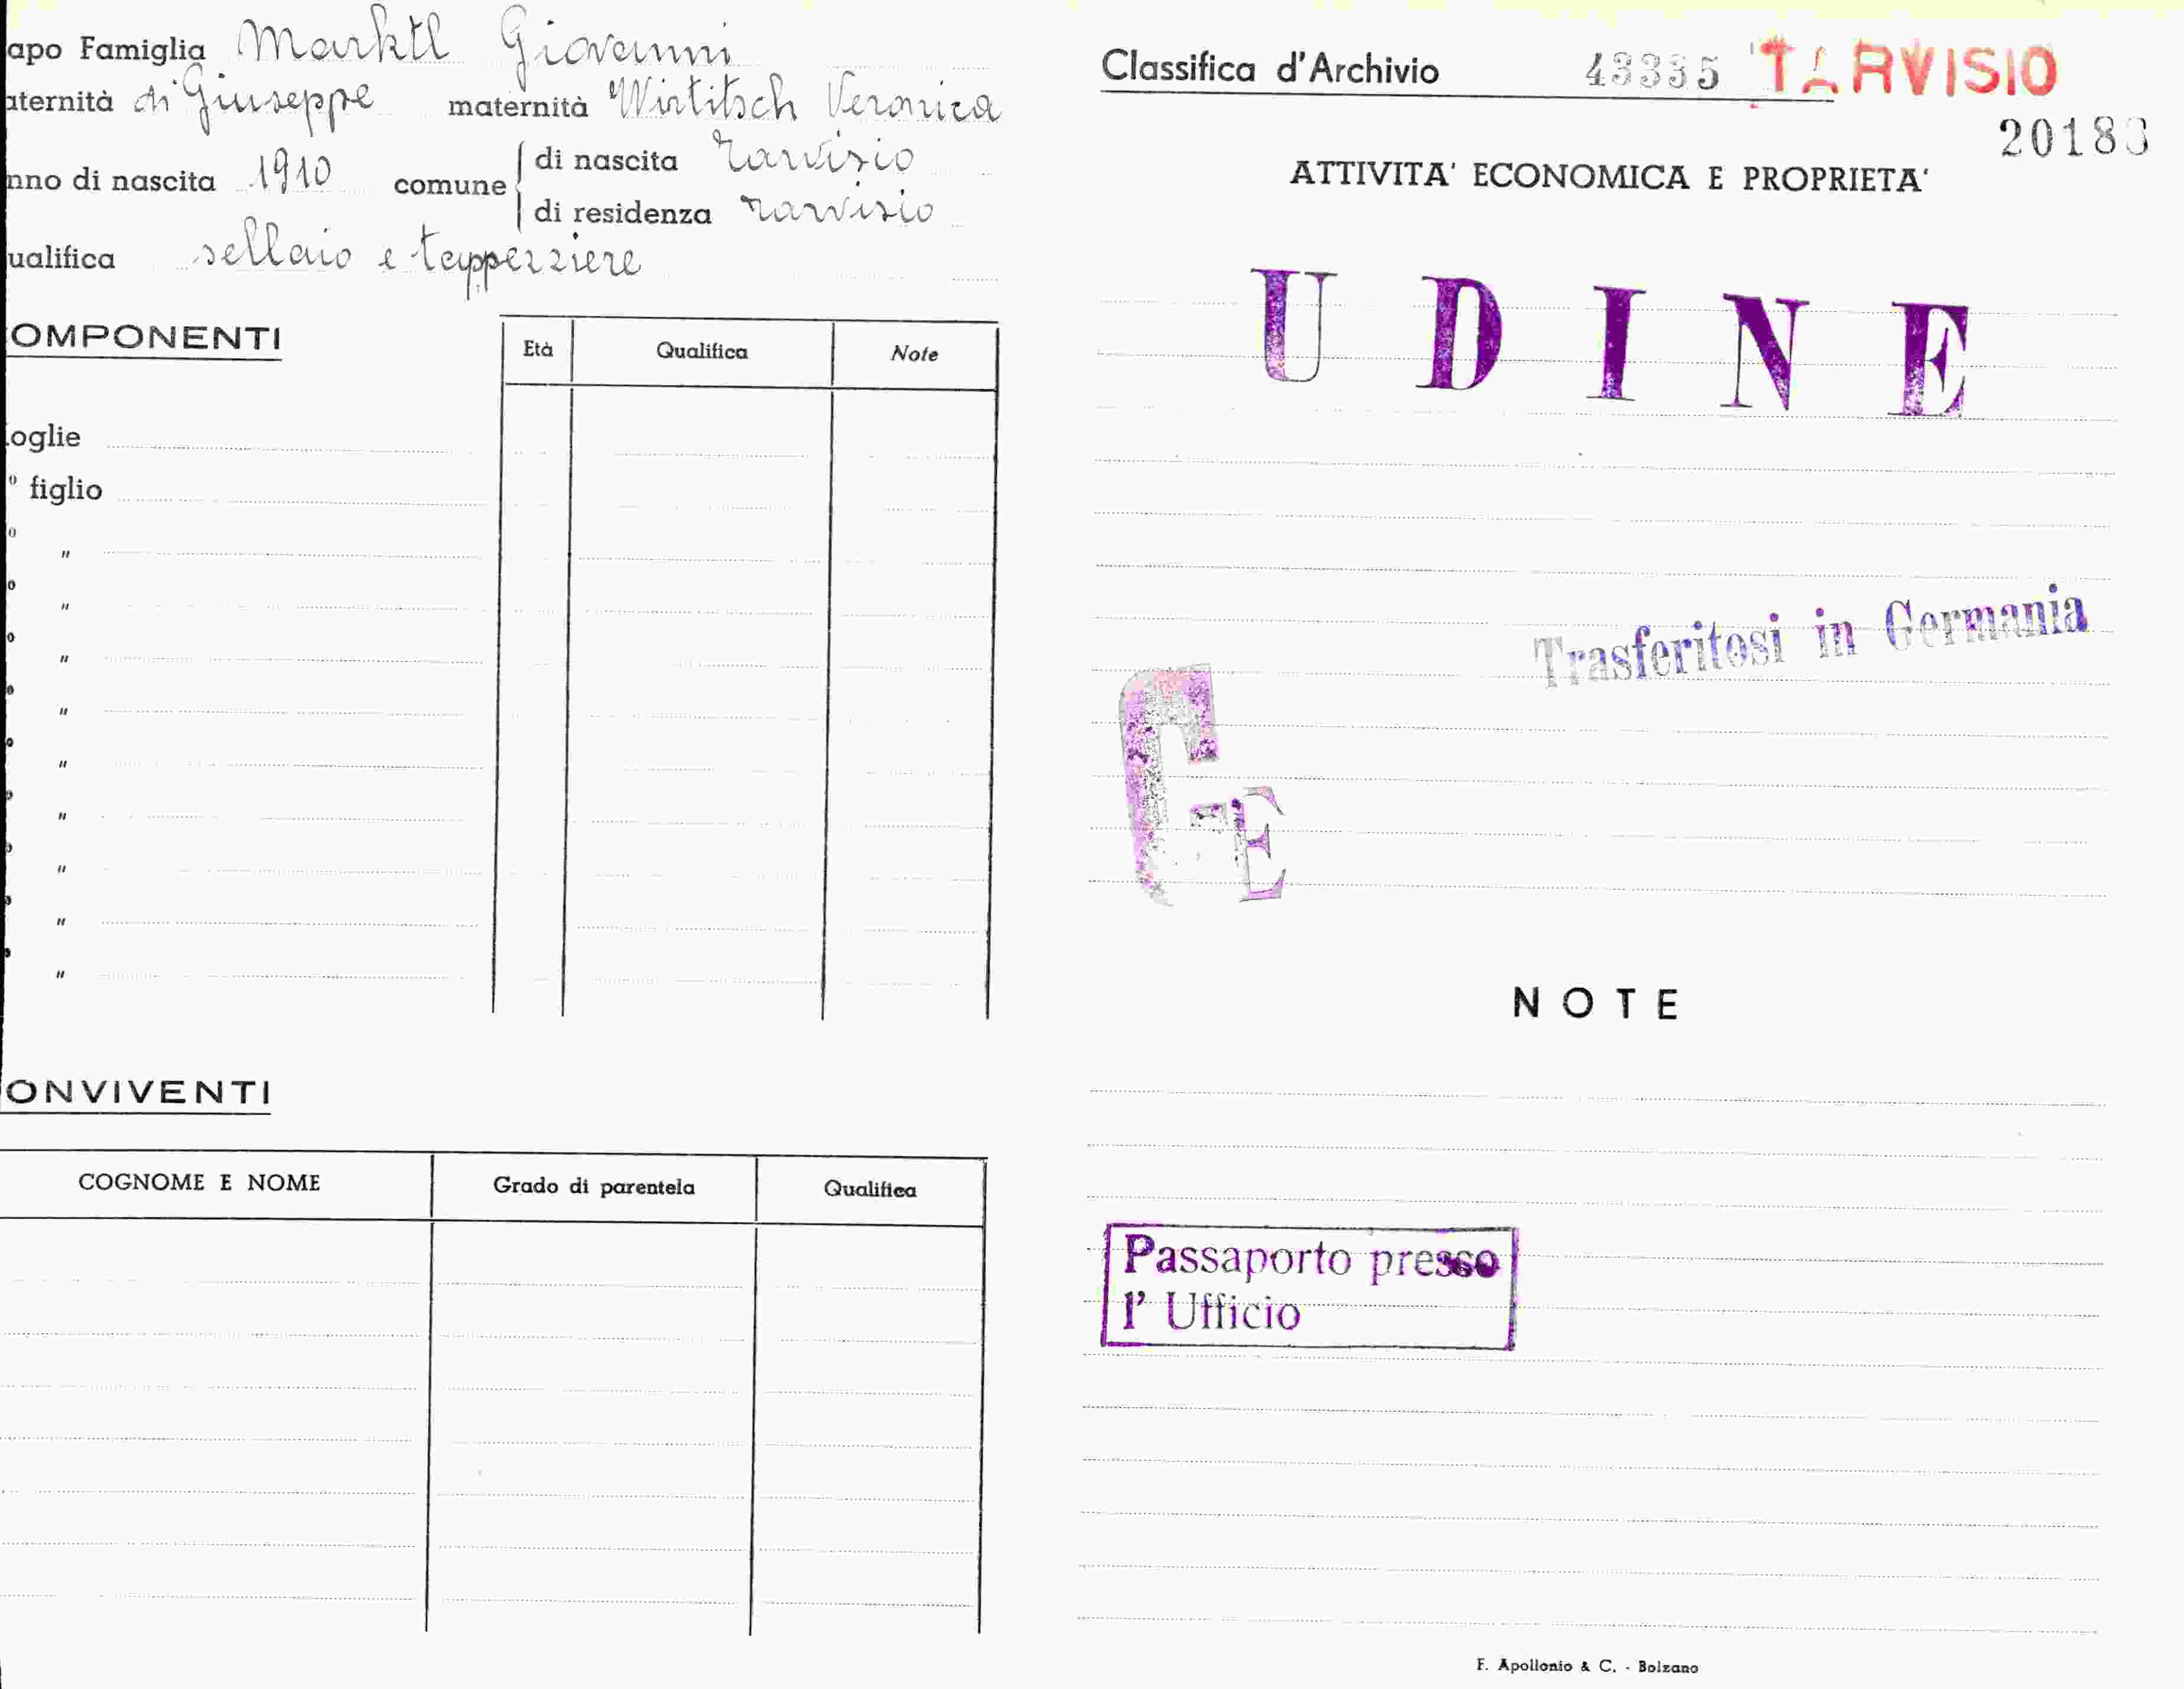 apo Famiglia Marktl Giovanni
aternità di Giuseppe maternità Wirtitsch Veronica
nno di nascita 1910 comune di nascita Tarvisio
di residenza Tarvisio
ualifica sellaio e tapperziere
OMPONENTI
Età Qualifica Note
oglie
° figlio
o "
o "
o "
o "
o "
o "
o "
o "
o "
ONVIVENTI
COGNOME E NOME Grado di parentela Qualifica
Classifica d'Archivio 43335 TARVISIO
20183
ATTIVITA' ECONOMICA E PROPRIETA'
UDINE
Trasferitosi in Germania
E
NOTE
Passaporto presso
l' Ufficio
F. Apollonio & C. - Bolzano